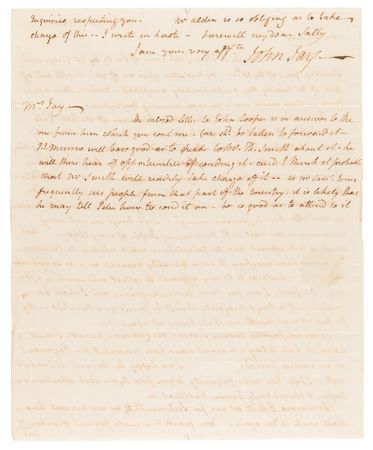 Inquiries respecting you. Mr Alden is so obliging as to take
charge of this — I write in haste — Farewell my dear Sally
I am your very affte
John Jay
Mrs Jay —
The enclosed Letter to John Cooper is in answer to the
one from him which you sent me — Care shd be taken to forward it —
P. Munro will be so good as to speak to Mr. Th. Smith about it — he
will there hear of opportunities of sending it — and I think it probable
that Mr Smith will readily take charge of it — as Mr
frequently see people from that part of the Country. it is likely that
he may tell Peter how to send it on — be so good as to attend to it